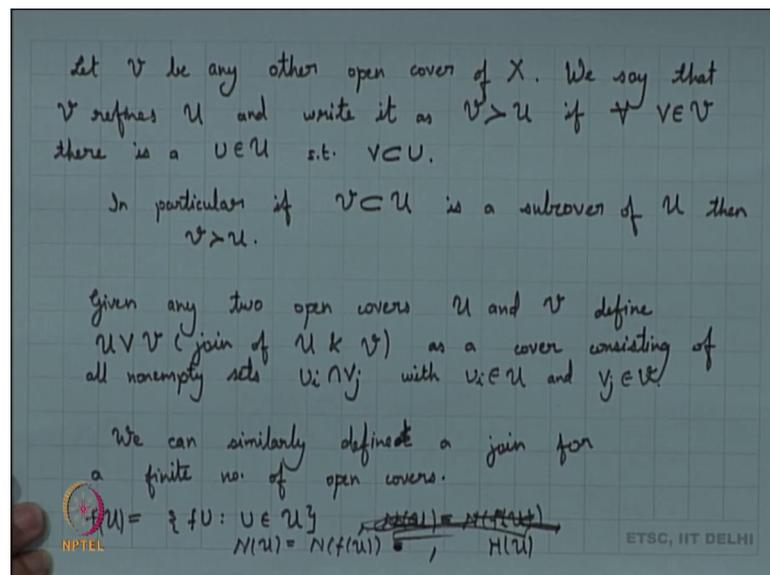 Let 𝒱 be any other open cover of X. We say that
𝒱 refines 𝒰 and write it as 𝒱 > 𝒰 if ∀ V ∈ 𝒱
there is a U ∈ 𝒰 s.t. V ⊂ U.
In particular if 𝒱 ⊂ 𝒰 is a subcover of 𝒰 then
𝒱 > 𝒰.
Given any two open covers 𝒰 and 𝒱 define
𝒰 ∨ 𝒱 (join of 𝒰 & 𝒱) as a cover consisting of
all nonempty sets Ui ∩ Vj with Ui ∈ 𝒰 and Vj ∈ 𝒱.
We can similarly define a join for
a finite no. of open covers.
f(𝒰) = { fU : U ∈ 𝒰 }
N(𝒰) = N(f(𝒰)) , H(𝒰)
NPTEL
ETSC, IIT DELHI